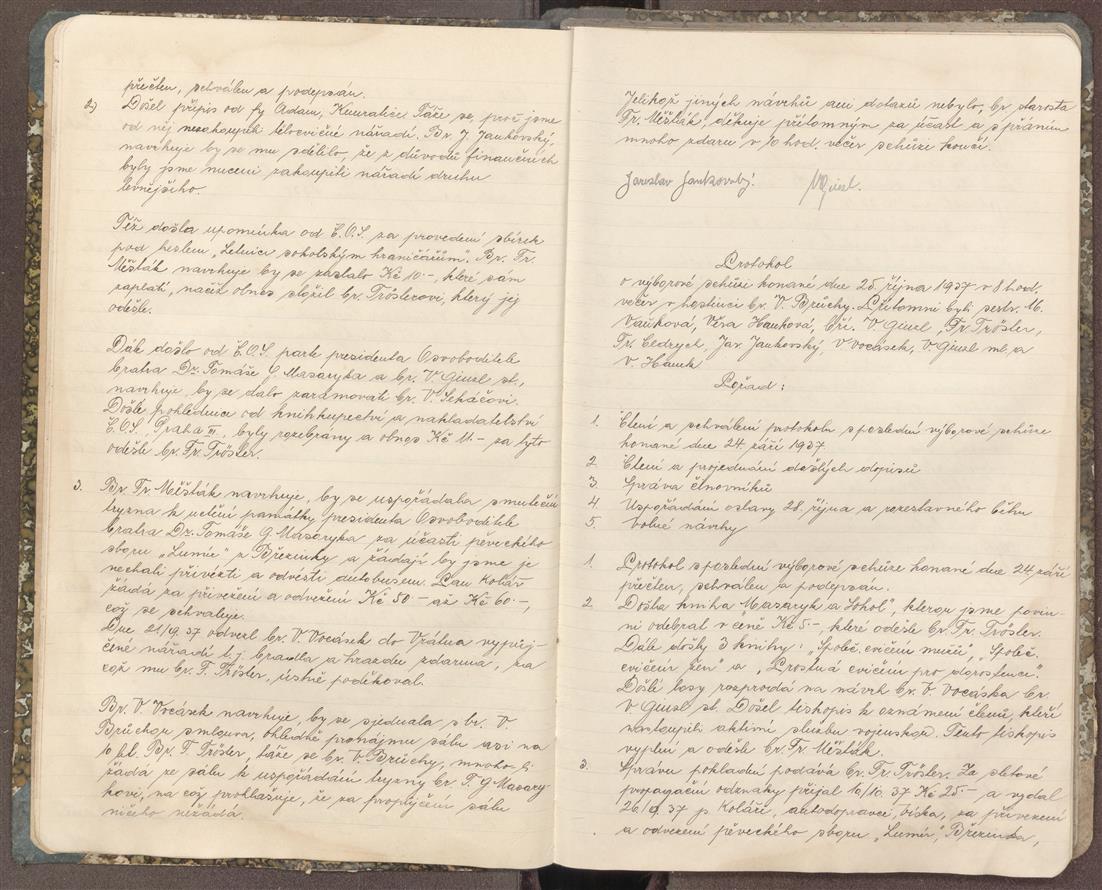 přečten, schválen a podepsán.
2.) Došel přípis od fy Adam, Kunratice. Táže se, proč jsme
od něj nezakoupili tělocvičné nářadí. Br. J. Jankovský,
navrhuje by se mu sdělilo, že z důvodů finančních
byli jsme nuceni zakoupiti nářadí druhu
levnějšího.
Též došla upomínka od Č.O.S. za provedení sbírek
pod heslem „Letnice sokolským hraničářům". Br. Fr.
Měšťák navrhuje by se zaslalo Kč 10.- které sám
zaplatí, načež obnos složil br. Trösterovi, který jej
odešle.
Dále došlo od Č.O.S. parte presidenta Osvoboditele
bratra Dr. Tomáše G. Masaryka a br. V. Giusl st.,
navrhuje, by se dalo zarámovati br. V. Seháčovi.
Došlé pohlednice od knihkupectví a nakladatelství
Č.O.S., Praha III, byly rozebrány a obnos Kč 11.- za tyto
odešle br. Fr. Tröster.
3. Br. Fr. Měšťák navrhuje, by se uspořádala smuteční
tryzna k uctění památky presidenta Osvoboditele
bratra Dr. Tomáše G Masaryka za účasti pěveckého
sboru „Lumír" z Březinky a žádají by jsme je
nechali přivézti a odvésti autobusem. Pan Kolář
žádá za přivezení a odvezení Kč 50- až Kč 60.-,
což se schvaluje.
Dne, 21/9. 37 odvezl br. V. Vocásek do Vrátna vypůj-
čené nářadí t.j. bradla a hrazdu zdarma, za
což mu br. F. Tröster, ústně poděkoval.
Br. V. Vocásek navrhuje, by se sjednala s br. V.
Brůchou smlouva, ohledně pronájmu sálu asi na
10 let. Br. F. Tröster, táže se br. V. Brůchy, mnoho-li
žádá ze sálu k uspořádání tryzny br. T. G Masary-
kovi, na což prohlašuje, že za propůjčení sálu
ničeho nežádá.
Jelikož jiných návrhů ani dotazů nebylo, br. starosta
Fr. Měšťák, děkuje přítomným za účast a s přáním
mnoho zdaru v 10 hod. večer schůzi končí.
Jaroslav Jankovský. VGiusl.
Protokol
o výborové schůzi konané dne 25. října 1937 v 8 hod.
večer v hostinci br. V. Brůchy. Přítomni byli sestr. M.
Vaňková, Věra Hanková, bří. V. Giusl, Fr. Tröster,
Fr. Bedrych, Jar. Jankovský, V Vocásek, V. Giusl ml. a
V. Hanek
Pořad:
1. Čtení a schválení protokolu s poslední výborové schůze
konané dne 24. září 1937.
2. Čtení a projednání došlých dopisů
3. Správa činovníků
4. Uspořádání oslavy 28. října a přestavného běhu
5. Volné návrhy
1. Protokol s poslední výborové schůze konané dne 24. září
přečten, schválen a podepsán.
2. Došla kniha „Masaryk a Sokol", kterou jsme povin-
ni odebrat v ceně Kč 5.-, které odešle br. Fr. Tröster.
Dále došly 3 knihy: „Společ. cvičení mužů", „Společ.
cvičení žen" a „Prostná cvičení pro dorostence".
Došlé losy rozprodá na návrh br. V. Vocáska br.
V Giusl st. Došel tiskopis k oznámení členů, kteří
nastoupili aktivní službu vojenskou. Tento tiskopis
vyplní a odešle br. Fr. Měšťák.
3. Správu pokladní podává br. Fr. Tröster. Za sletové
propagační odznaky přijal 10/10. 37 Kč 25.- a vydal
26/9 37 p. Koláři, autodopravci, za přivezení
a odvezení pěveckého sboru „Lumír", Březinka,